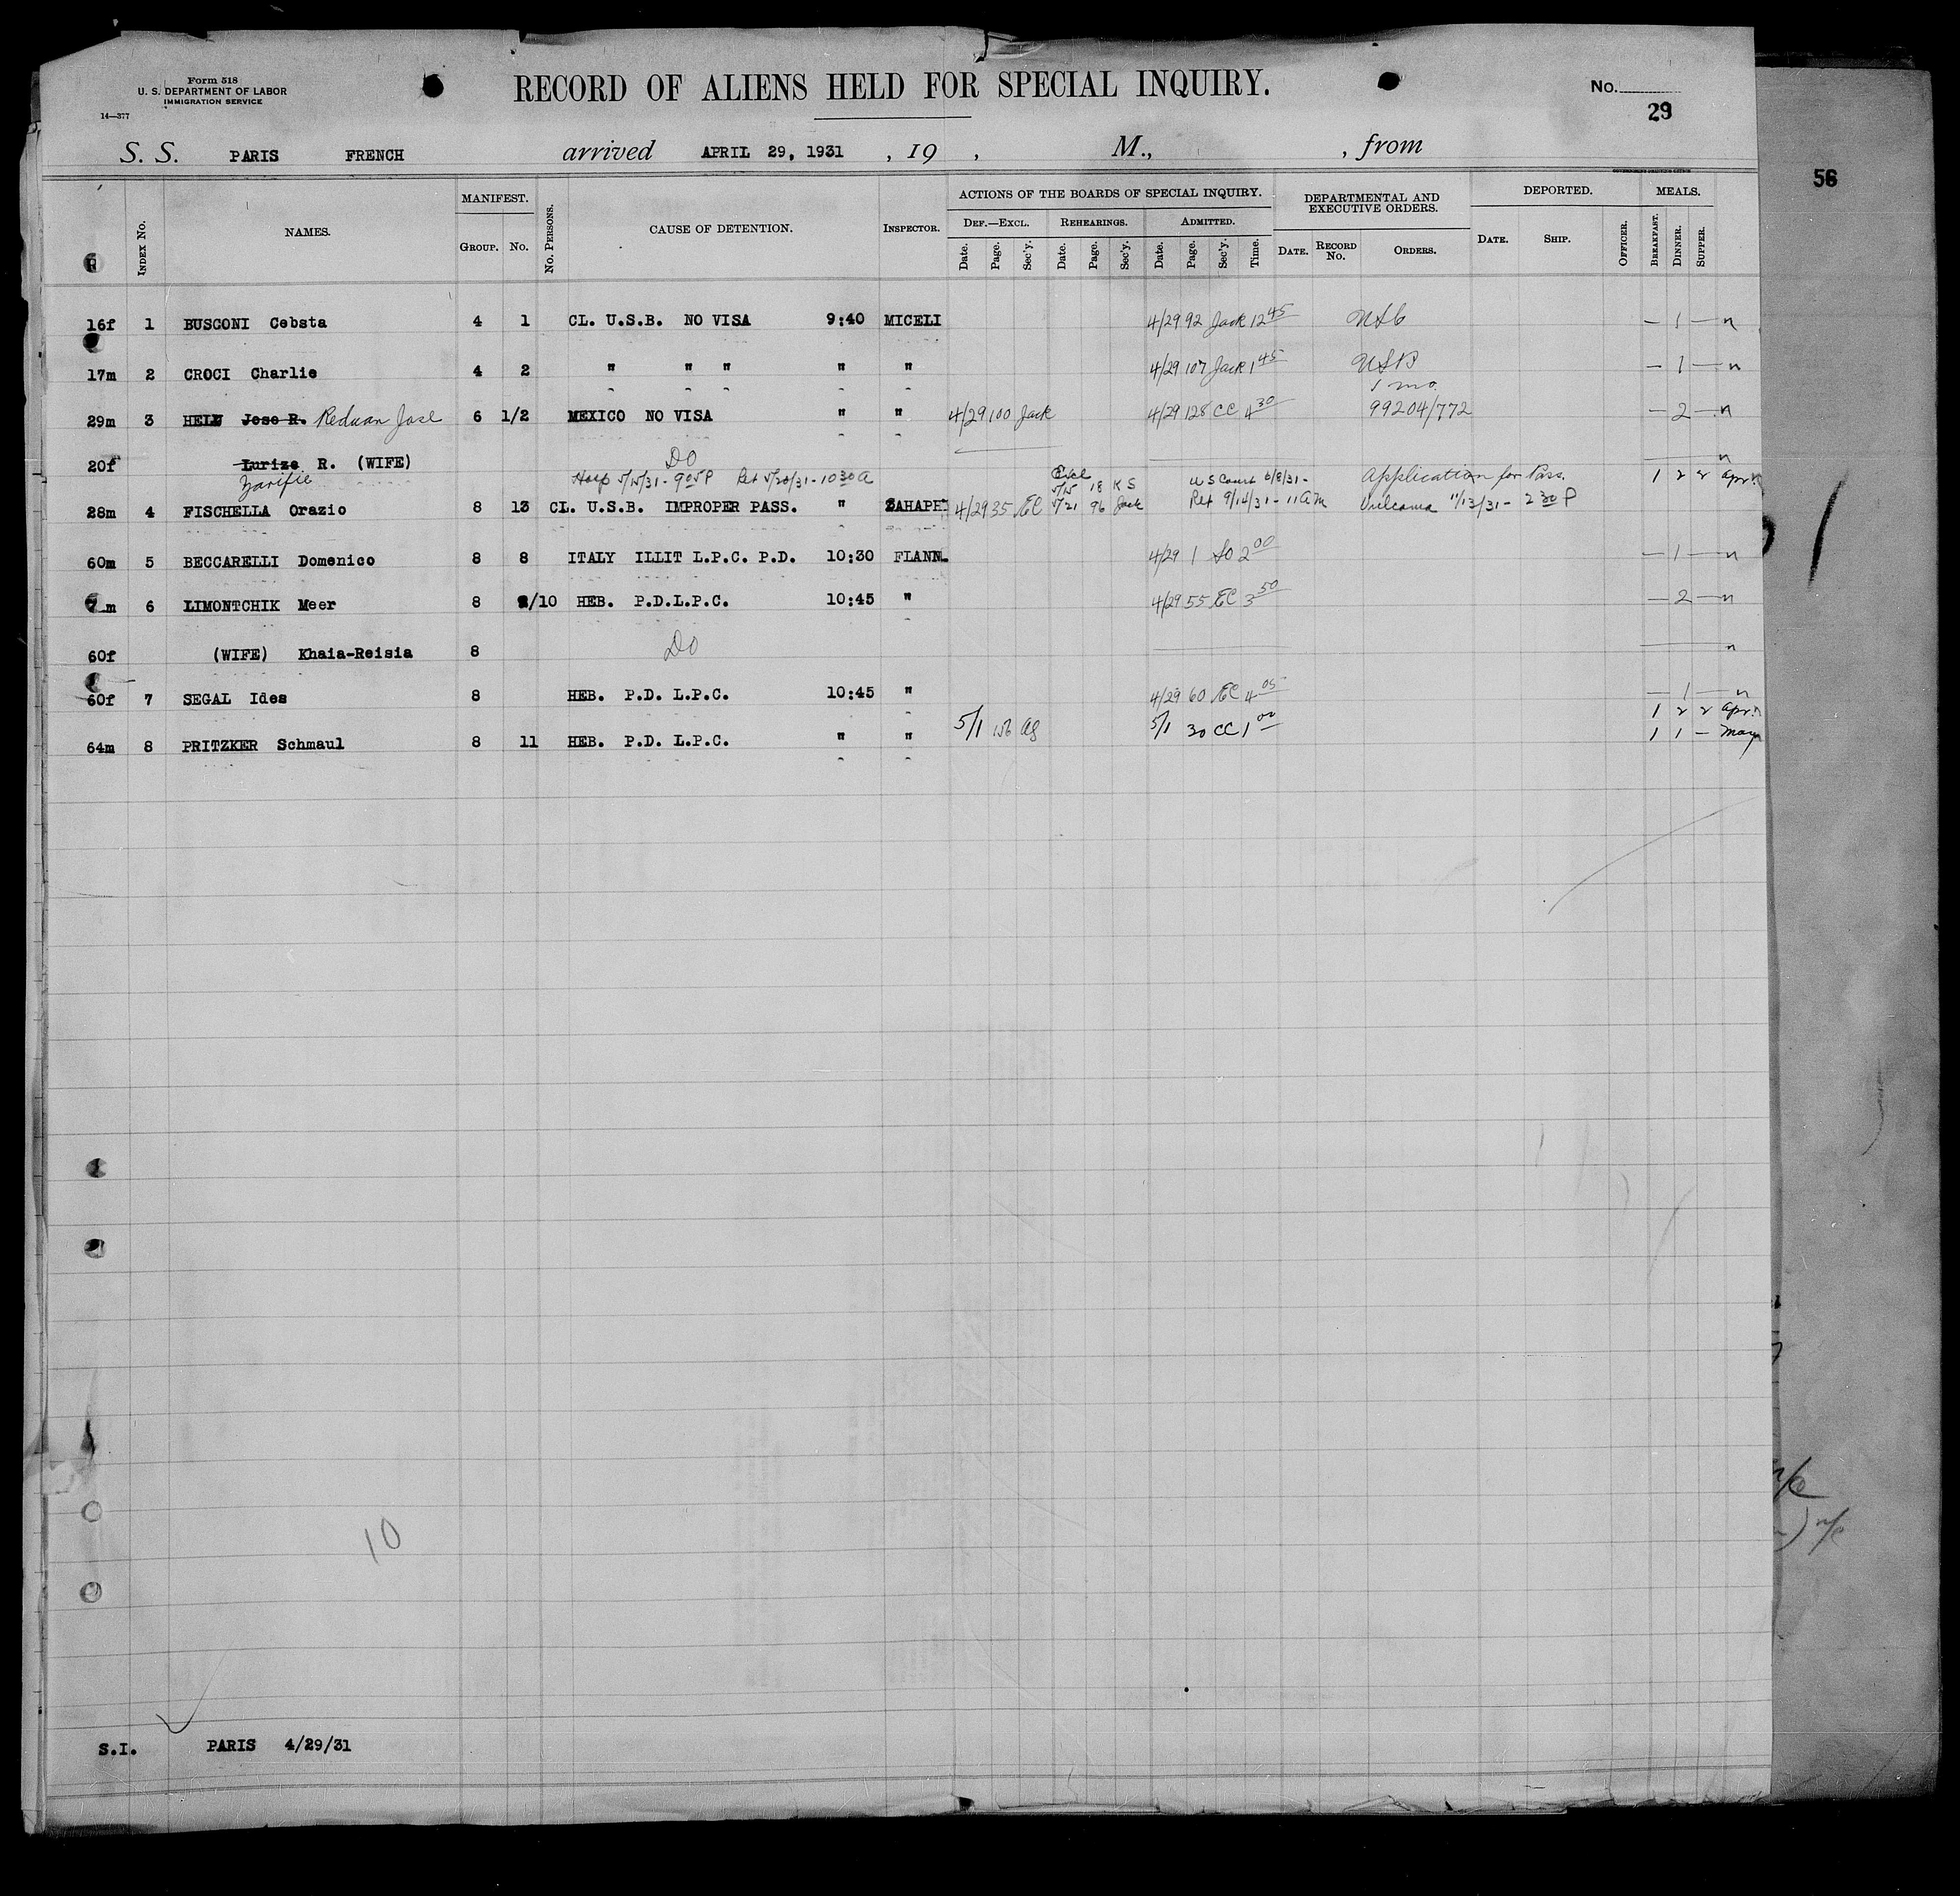 Form 518
U. S. DEPARTMENT OF LABOR
IMMIGRATION SERVICE
14—377
RECORD OF ALIENS HELD FOR SPECIAL INQUIRY.
No.
29
56
S. S. PARIS FRENCH arrived APRIL 29, 1931 , 19 , M., , from
INDEX No. NAMES. MANIFEST. GROUP. No. No. PERSONS. CAUSE OF DETENTION. INSPECTOR. ACTIONS OF THE BOARDS OF SPECIAL INQUIRY. DEF.—EXCL. Date. Page. Sec'y. REHEARINGS. Date. Page. Sec'y. ADMITTED. Date. Page. Sec'y. Time. DEPARTMENTAL AND EXECUTIVE ORDERS. DATE. RECORD No. ORDERS. DEPORTED. DATE. SHIP. OFFICER. MEALS. BREAKFAST. DINNER. SUPPER.
16f 1 BUSCONI Cebsta 4 1 CL. U.S.B. NO VISA 9:40 MICELI 4/29 92 Jack 12 45 — 1 — n
17m 2 CROCI Charlie 4 2 " " " " " 4/29 107 Jack 1 45 USB — 1 — n
1 mo.
29m 3 HELU Jose R. Reduan Jose 6 1/2 MEXICO NO VISA " " 4/29 100 Jack 4/29 128 CC 4 30 99204/772 — 2 — n
20f Lurize R. (WIFE) DO n
Zarifie Hosp 5/15/31 - 9 05 P Ret 5/20/31 - 10 30 A Excl 5/15 18 K S U S Court 6/8/31 - Application for Pass. 1 2 2 Apr
28m 4 FISCHELLA Orazio 8 13 CL. U.S.B. IMPROPER PASS. " ZAHAPH 4/29 35 EC 5/21 96 Jack Ret 9/14/31 - 11 AM Vulcania 11/13/31 - 2 30 P
60m 5 BECCARELLI Domenico 8 8 ITALY ILLIT L.P.C. P.D. 10:30 FLANN. 4/29 1 SO 2 00 — 1 — n
7 m 6 LIMONTCHIK Meer 8 /10 HEB. P.D.L.P.C. 10:45 " 4/29 55 EC 3 50 — 2 — n
60f (WIFE) Khaia-Reisia 8 DO n
60f 7 SEGAL Ides 8 HEB. P.D. L.P.C. 10:45 " 4/29 60 EC 4 05 — 1 — n
1 2 2 Apr.
64m 8 PRITZKER Schmaul 8 11 HEB. P.D. L.P.C. " " 5/1 156 AG 5/1 30 CC 1 00 1 1 — May
10
S.I. PARIS 4/29/31